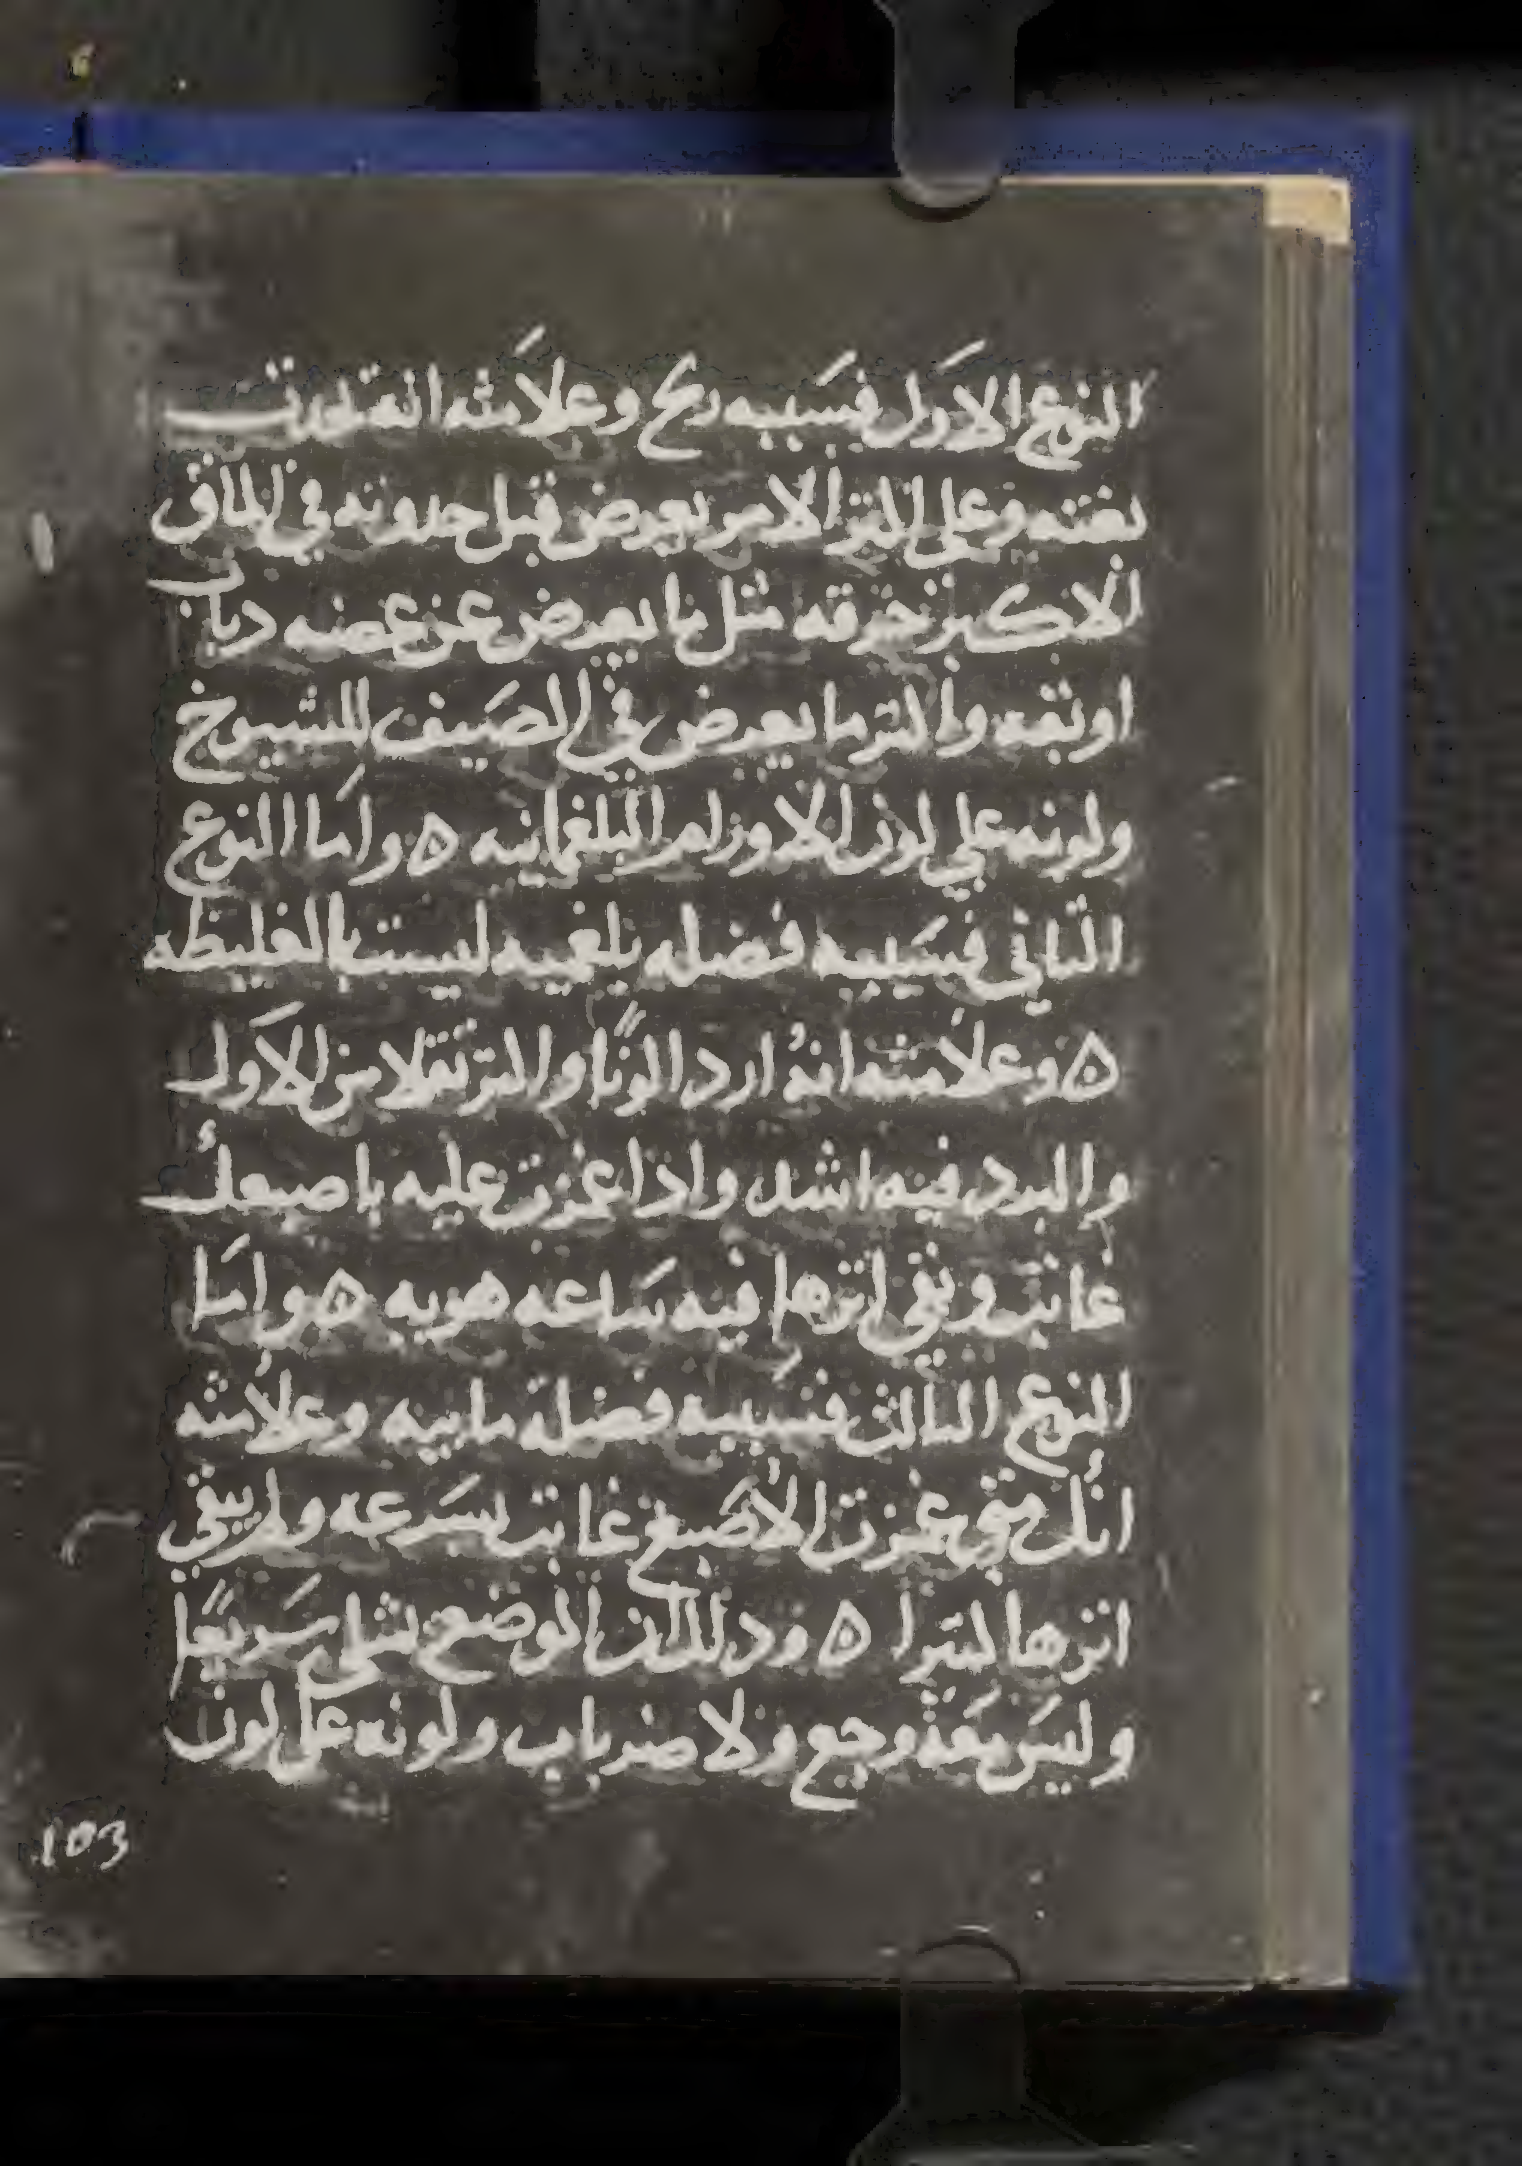 النوع الاول فسببه ريح وعلامته انه يحدث
بغته وعلي اكثر الامر يعرض قبل حدوثه في الماق
الاكبر حرقه مثل ما يعرض عن عضه دباب
او بقه واكثر ما يعرض في الصيف للشيوخ
ولونه علي لون الاورام البلغمانيه ه واما النوع
الثاني فسببه فضله بلغميه ليست بالغليظه
ه وعلامته انه اردا لونا واكثر ثقلا من الاول
والبرد فيه اشد واذا غمزت عليه باصبعك
غابت وبقي اثرها فيه ساعه هويه ه واما
النوع الثالث فسببه فضلة مابيه وعلامته
انك متي غمزت الاصبع غابت بسرعه ولا يبقي
اثرها كثيرا ه ودلك ان الوضع يمتلي سريعا
وليس معه وجع ولا ضربان ولونه علي لون
103